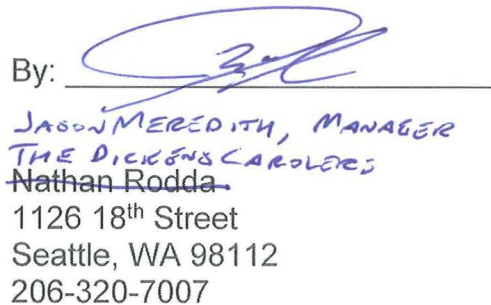 By:
JASON MEREDITH, MANAGER
THE DICKENS CAROLERS
Nathan Rodda
1126 18th Street
Seattle, WA 98112
206-320-7007